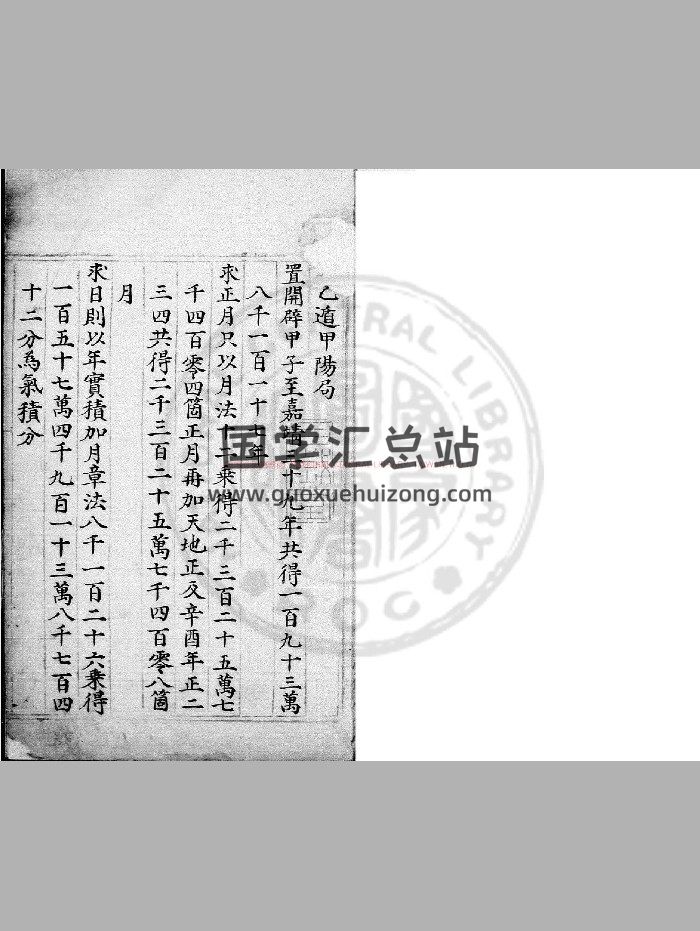 乙遁甲陽局
置開辟甲子至嘉靖三十九年共得一百九十三萬
八千一百一十七年
求正月只以月法十二乘得二千三百二十五萬七
千四百零四箇正月再加天地正及辛酉年正二
三四共得二千三百二十五萬七千四百零八箇
月
求日則以年實積加月章法八千一百二十六乘得
一百五十七萬四千九百一十三萬八千七百四
十二分為氣積分
国学汇总站
www.guoxuehuizong.com
RAL LIBRARY
ROC